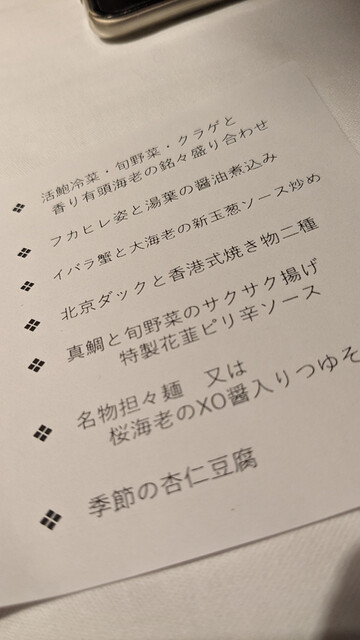 ❖ 活鮑冷菜・旬野菜・クラゲと
香り有頭海老の銘々盛り合わせ
❖ フカヒレ姿と湯葉の醤油煮込み
❖ イバラ蟹と大海老の新玉葱ソース炒め
❖ 北京ダックと香港式焼き物二種
❖ 真鯛と旬野菜のサクサク揚げ
特製花韮ピリ辛ソース
❖ 名物担々麺 又は
桜海老のXO醤入りつゆそ
❖ 季節の杏仁豆腐